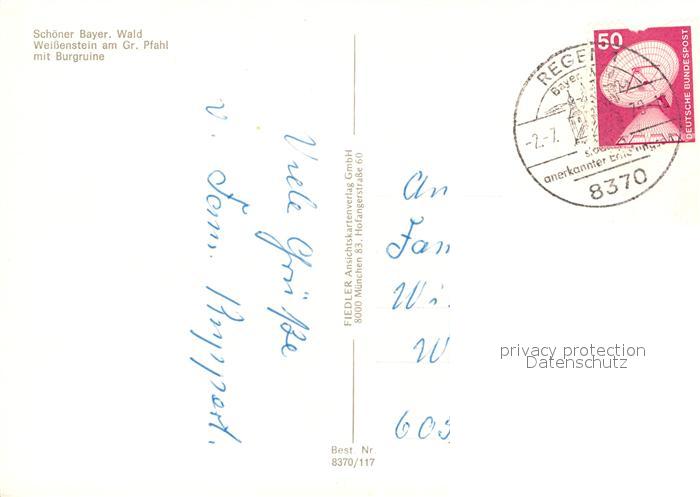 Schöner Bayer. Wald
Weißenstein am Gr. Pfahl
mit Burgruine
Viele Grüße
v. Fam. Ruppert.
FIEDLER Ansichtskartenverlag GmbH
8000 München 83, Hofangerstraße 60
Best. Nr.
8370/117
50
DEUTSCHE BUNDESPOST
REGEN
Bayer.
-2.-7.
anerkannter
8370
An
Fam
Wi.
W
603
privacy protection
Datenschutz